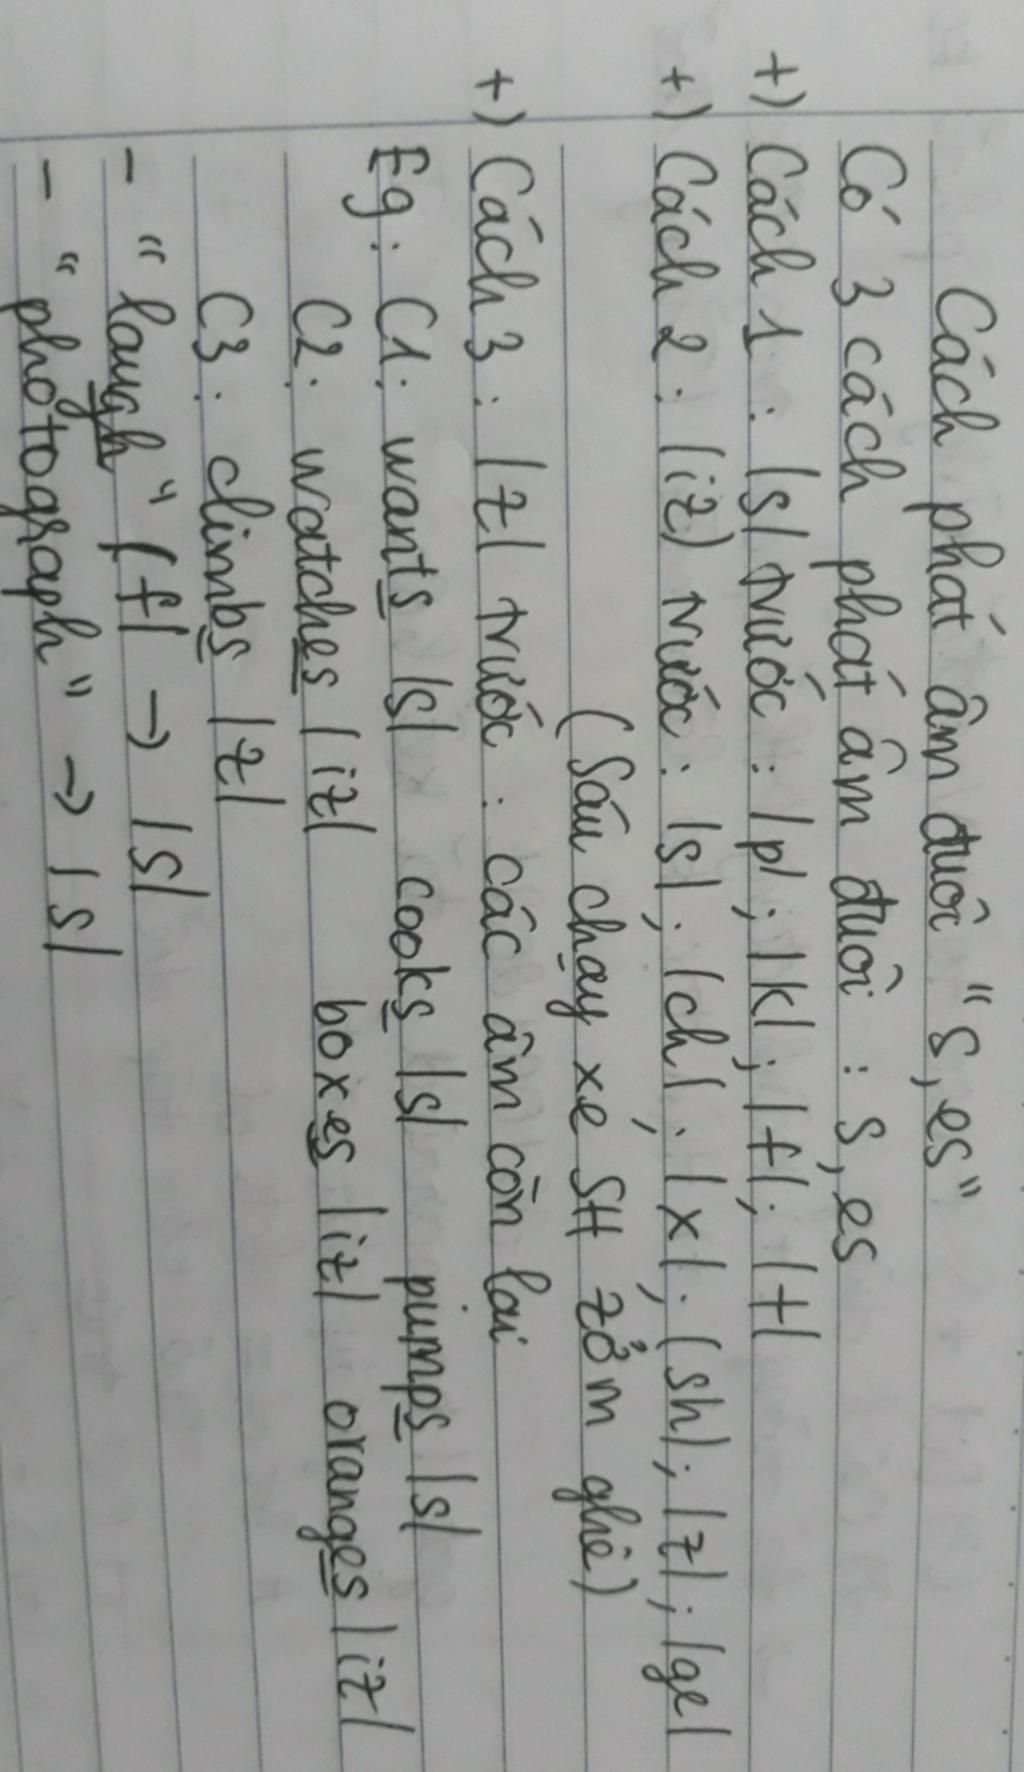 Cách phát âm đuôi "s, es"
Có 3 cách phát âm đuôi : s, es
+) Cách 1 : /s/ trước : /p/ ; /k/ ; /f/ ; /t/
+) Cách 2 : /iz/ trước : /s/ ; /ch/ ; /x/ ; /sh/ ; /z/ ; /ge/
(Sáu chạy xe SH zởm ghê)
+) Cách 3 : /z/ trước : các âm còn lại
Eg : C1 : wants /s/ cooks /s/ pumps /s/
C2 : watches /iz/ boxes /iz/ oranges /iz/
C3 : climbs /z/
- "laugh" /f/ → /s/
- "photograph" → /s/